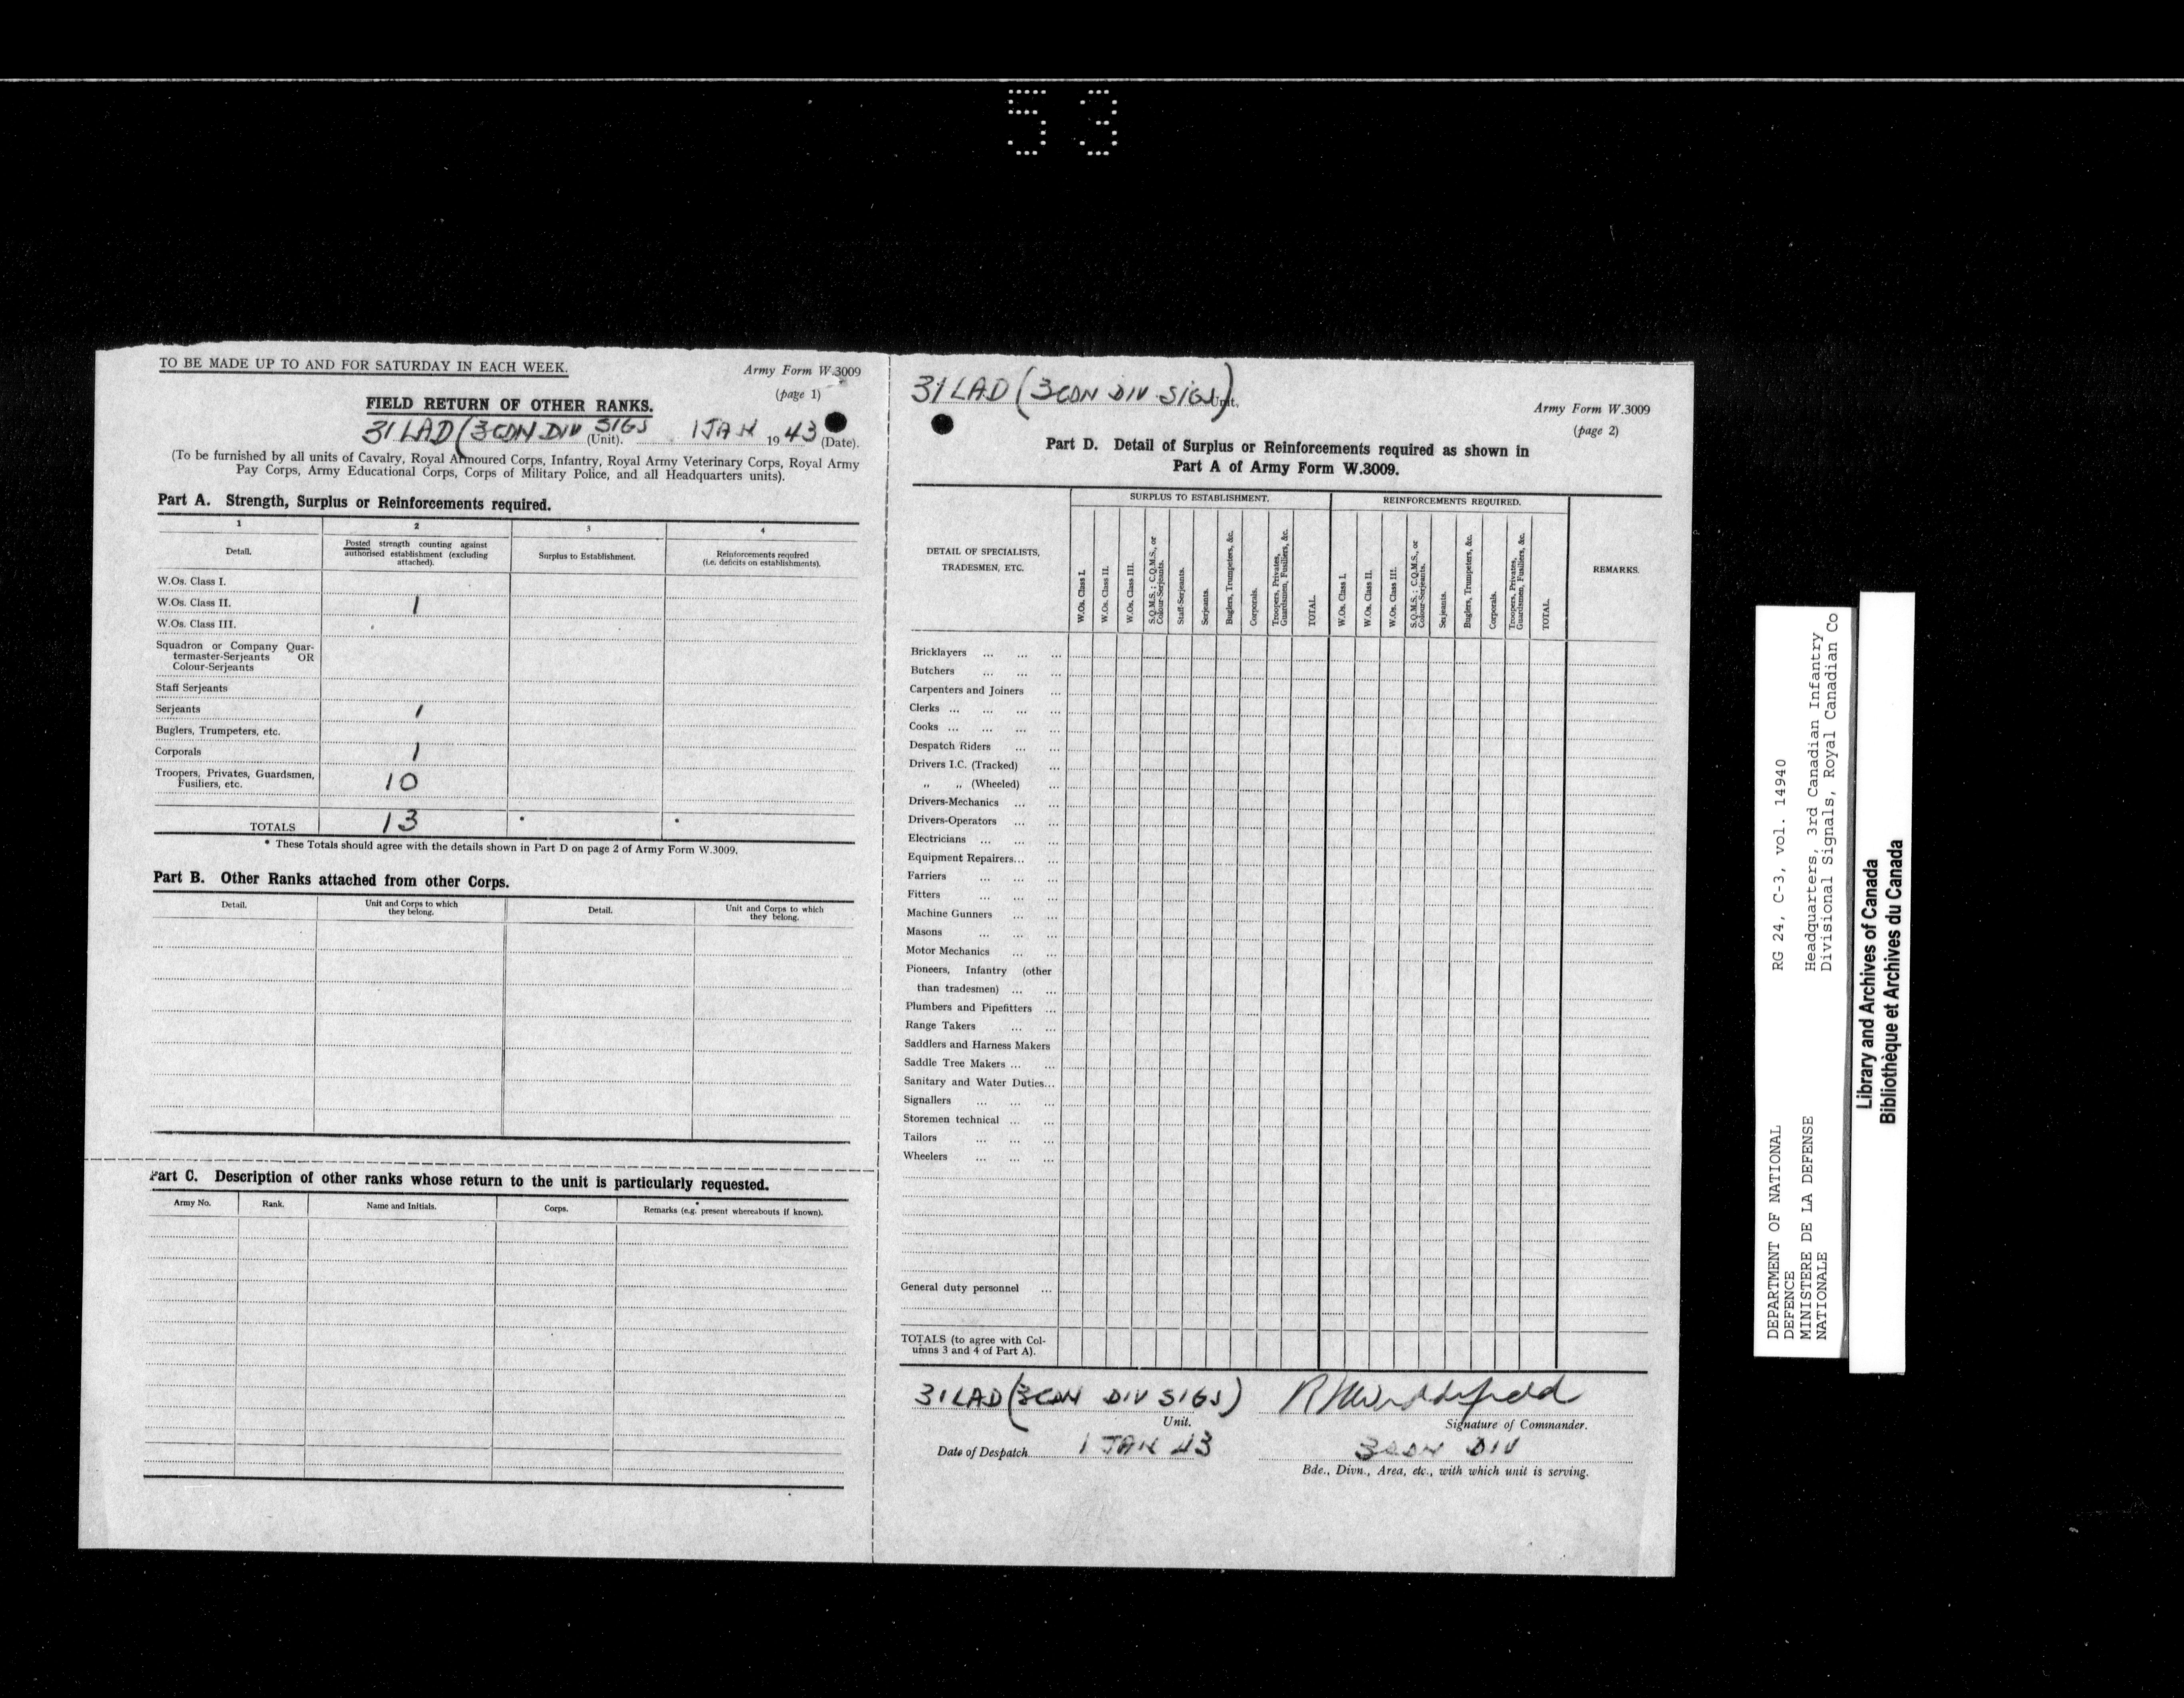 53
TO BE MADE UP TO AND FOR SATURDAY IN EACH WEEK.
Army Form W.3009
(page 1)
FIELD RETURN OF OTHER RANKS.
31 LAD (3 CDN DIV SIGS (Unit). 1 JAN 1943 (Date).
(To be furnished by all units of Cavalry, Royal Armoured Corps, Infantry, Royal Army Veterinary Corps, Royal Army
Pay Corps, Army Educational Corps, Corps of Military Police, and all Headquarters units).
Part A. Strength, Surplus or Reinforcements required.
1 2 3 4
Detail.
Posted strength counting against
authorised establishment (excluding
attached).
Surplus to Establishment.
Reinforcements required
(i.e. deficits on establishments).
W.Os. Class I.
W.Os. Class II. 1
W.Os. Class III.
Squadron or Company Quar-
termaster-Serjeants OR
Colour-Serjeants
Staff Serjeants
Serjeants 1
Buglers, Trumpeters, etc.
Corporals 1
Troopers, Privates, Guardsmen,
Fusiliers, etc. 10
TOTALS 13 * *
* These Totals should agree with the details shown in Part D on page 2 of Army Form W.3009.
Part B. Other Ranks attached from other Corps.
Detail.
Unit and Corps to which
they belong.
Detail.
Unit and Corps to which
they belong.
Part C. Description of other ranks whose return to the unit is particularly requested.
Army No. Rank. Name and Initials. Corps. Remarks (e.g. present whereabouts if known).
31 LAD (3 CDN DIV SIGS) Unit.
Army Form W.3009
(page 2)
Part D. Detail of Surplus or Reinforcements required as shown in
Part A of Army Form W.3009.
DETAIL OF SPECIALISTS,
TRADESMEN, ETC.
SURPLUS TO ESTABLISHMENT.
W.Os. Class I.
W.Os. Class II.
W.Os. Class III.
S.Q.M.S.; C.Q.M.S., or
Colour-Serjeants.
Staff-Serjeants.
Serjeants.
Buglers, Trumpeters, &c.
Corporals.
Troopers, Privates,
Guardsmen, Fusiliers, &c.
TOTAL.
REINFORCEMENTS REQUIRED.
W.Os. Class I.
W.Os. Class II.
W.Os. Class III.
S.Q.M.S.; C.Q.M.S., or
Colour-Serjeants.
Serjeants.
Buglers, Trumpeters, &c.
Corporals.
Troopers, Privates,
Guardsmen, Fusiliers, &c.
TOTAL.
REMARKS.
Bricklayers ... ... ...
Butchers ... ... ...
Carpenters and Joiners ...
Clerks ... ... ... ...
Cooks ... ... ... ...
Despatch Riders ... ...
Drivers I.C. (Tracked) ...
„ „ (Wheeled) ...
Drivers-Mechanics ... ...
Drivers-Operators ... ...
Electricians ... ... ...
Equipment Repairers... ...
Farriers ... ... ...
Fitters ... ... ...
Machine Gunners ... ...
Masons ... ... ...
Motor Mechanics ... ...
Pioneers, Infantry (other
than tradesmen) ... ...
Plumbers and Pipefitters ...
Range Takers ... ...
Saddlers and Harness Makers
Saddle Tree Makers ... ...
Sanitary and Water Duties...
Signallers ... ... ...
Storemen technical ... ...
Tailors ... ... ...
Wheelers ... ... ...
General duty personnel ...
TOTALS (to agree with Col-
umns 3 and 4 of Part A).
31 LAD (3 CDN DIV SIGS)
Unit.
Signature of Commander.
Date of Despatch 1 JAN 43
3 CDN DIV
Bde., Divn., Area, etc., with which unit is serving.
DEPARTMENT OF NATIONAL
DEFENCE
MINISTERE DE LA DEFENSE
NATIONALE
RG 24, C-3, vol. 14940
Headquarters, 3rd Canadian Infantry
Divisional Signals, Royal Canadian Co
Library and Archives of Canada
Bibliothèque et Archives du Canada